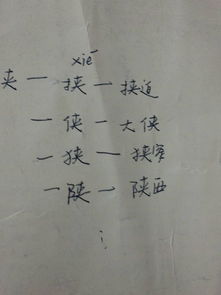 xié
夹 — 挟 — 挟道
— 侠 — 大侠
— 狭 — 狭窄
— 陕 — 陕西
⋮